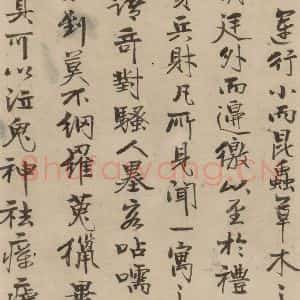 運行小而昆蟲草木之
朝廷外而邊徼以至於禮
兵財凡所見聞一寓
詩奇對騷人墨客咕嚅
劉莫不網羅蒐獵畢
真可以泣鬼神祛瘴癘
Shufawang.CN